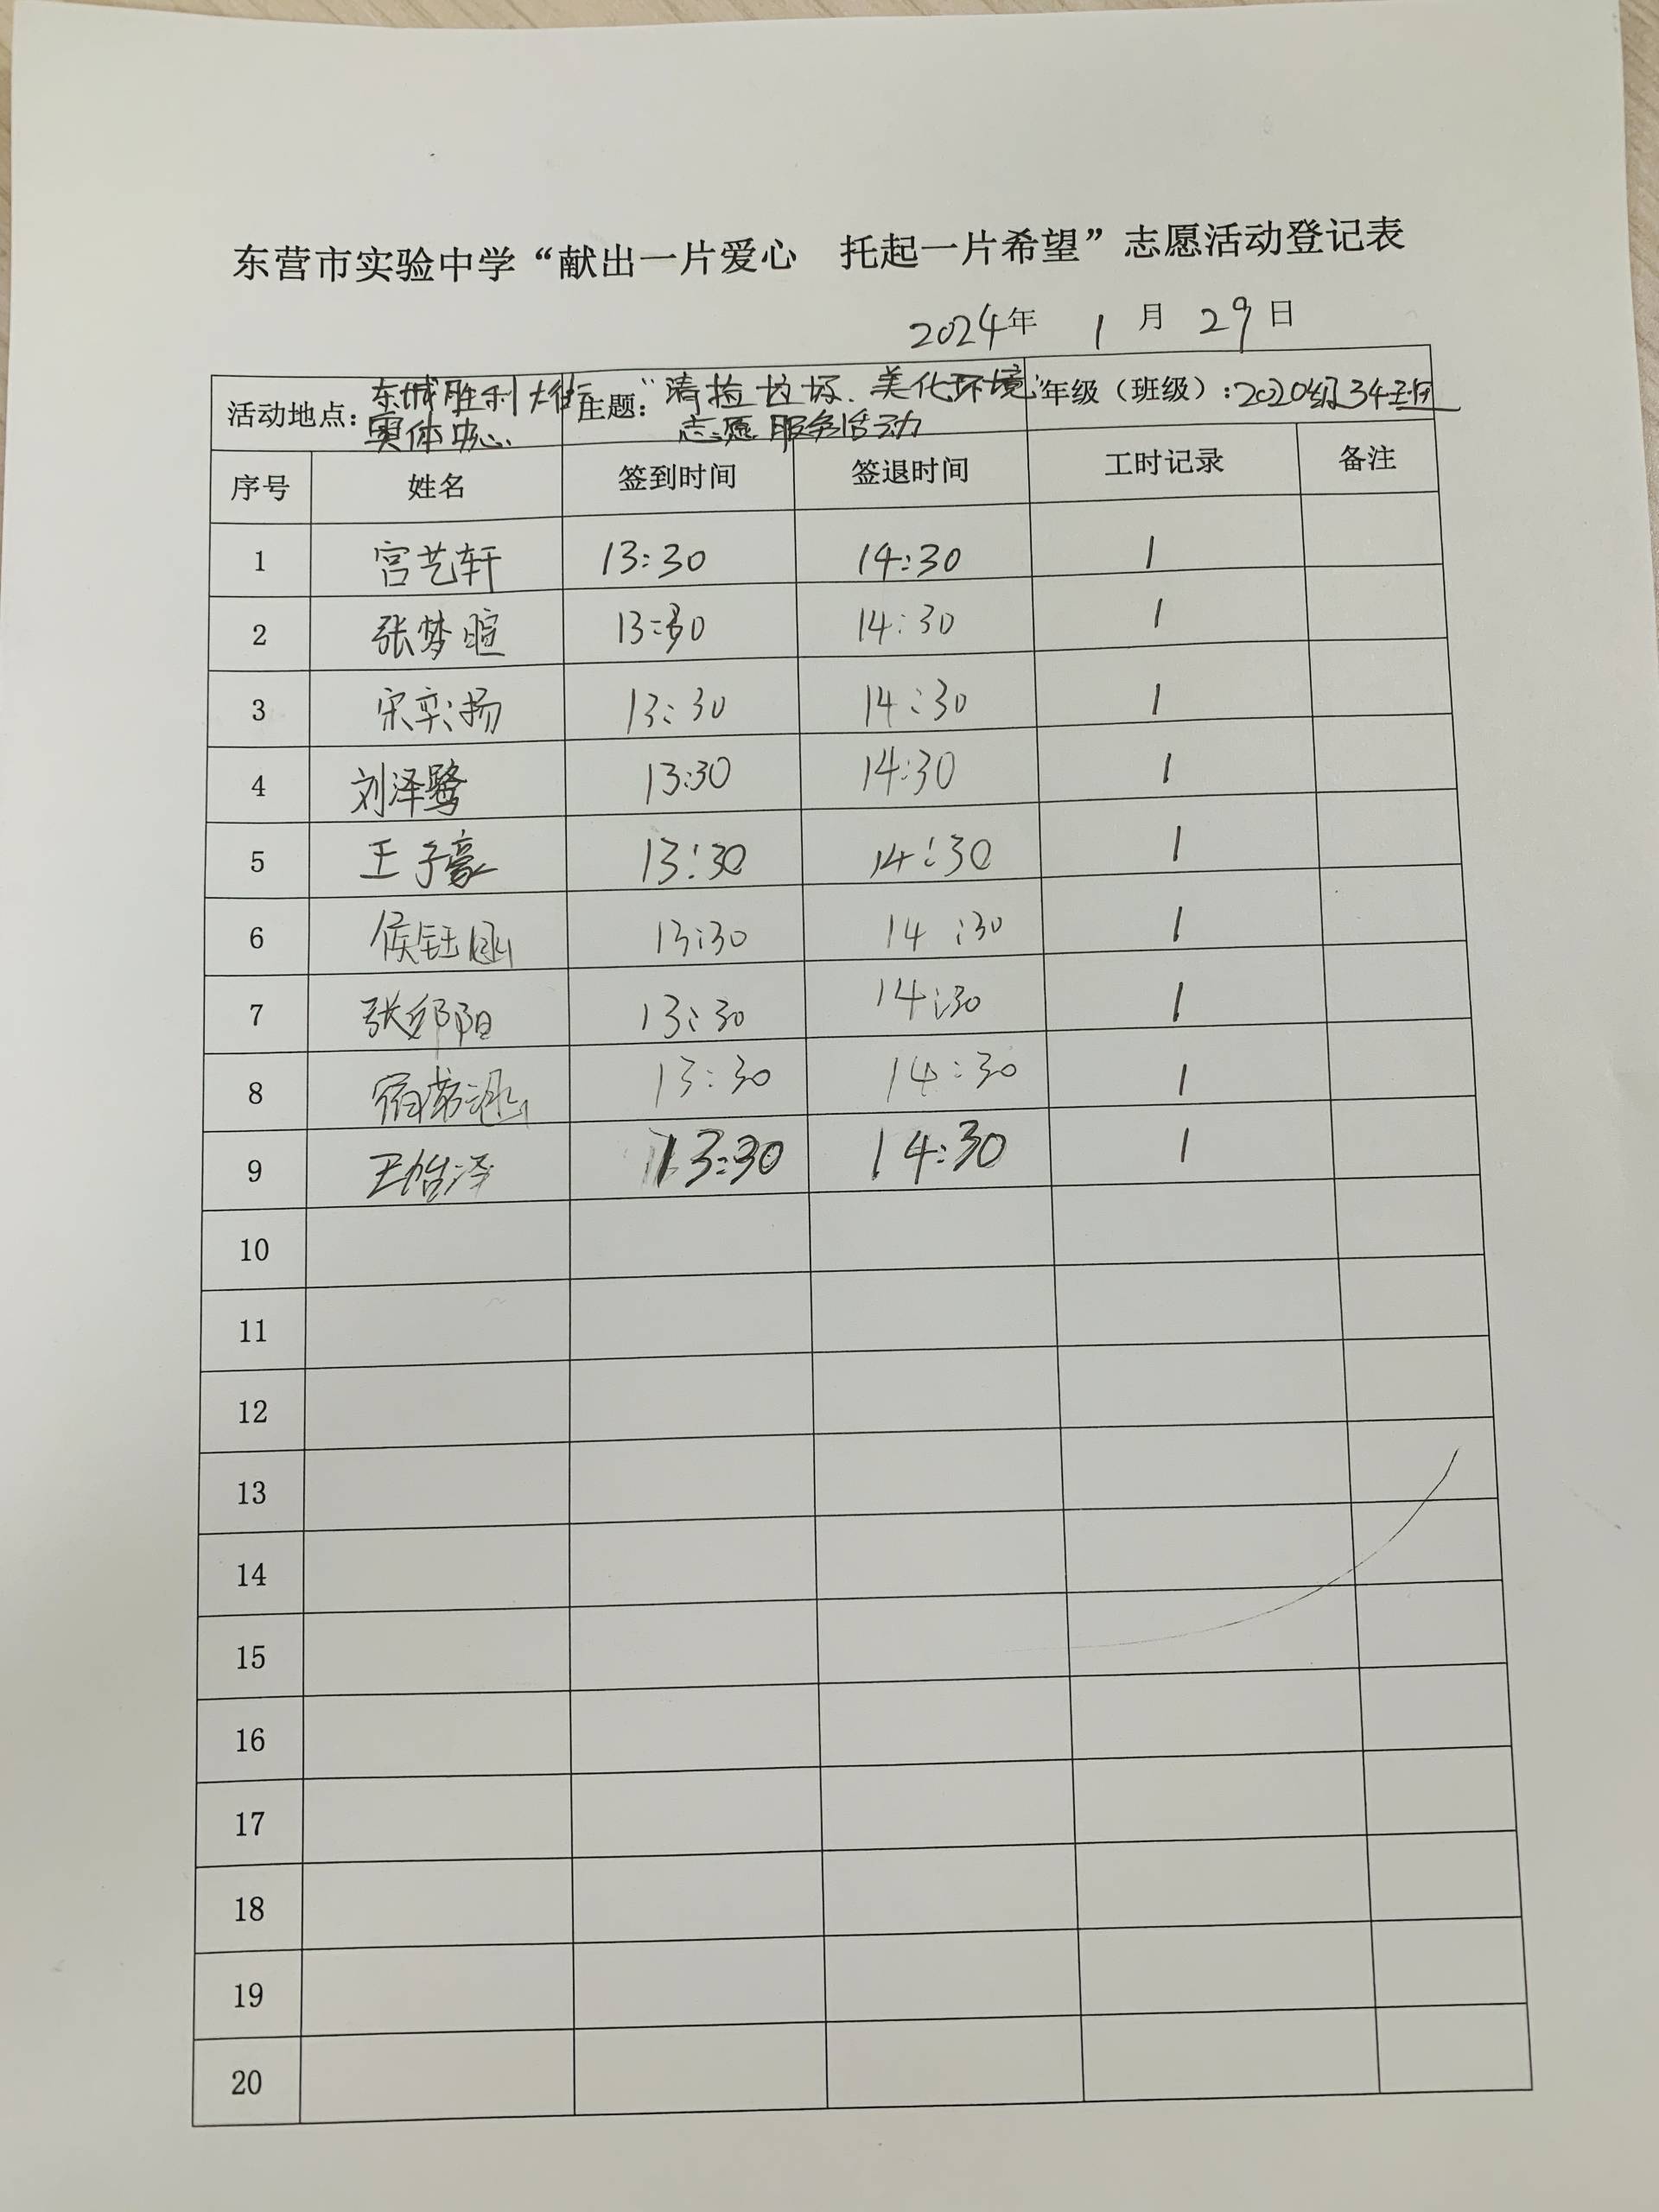 东营市实验中学“献出一片爱心 托起一片希望”志愿活动登记表
2024年 1 月 29 日
活动地点: 东城胜利大街 主题: “清捡垃圾、美化环境” 年级（班级）: 2020级34班
奥体中心 志愿服务活动
序号 姓名 签到时间 签退时间 工时记录 备注
1 宫艺轩 13:30 14:30 1
2 张梦暄 13:30 14:30 1
3 宋奕扬 13:30 14:30 1
4 刘泽鹭 13:30 14:30 1
5 王子豪 13:30 14:30 1
6 侯钰涵 13:30 14:30 1
7 张郑阳 13:30 14:30 1
8 13:30 14:30 1
9 王怡泽 13:30 14:30 1
10
11
12
13
14
15
16
17
18
19
20